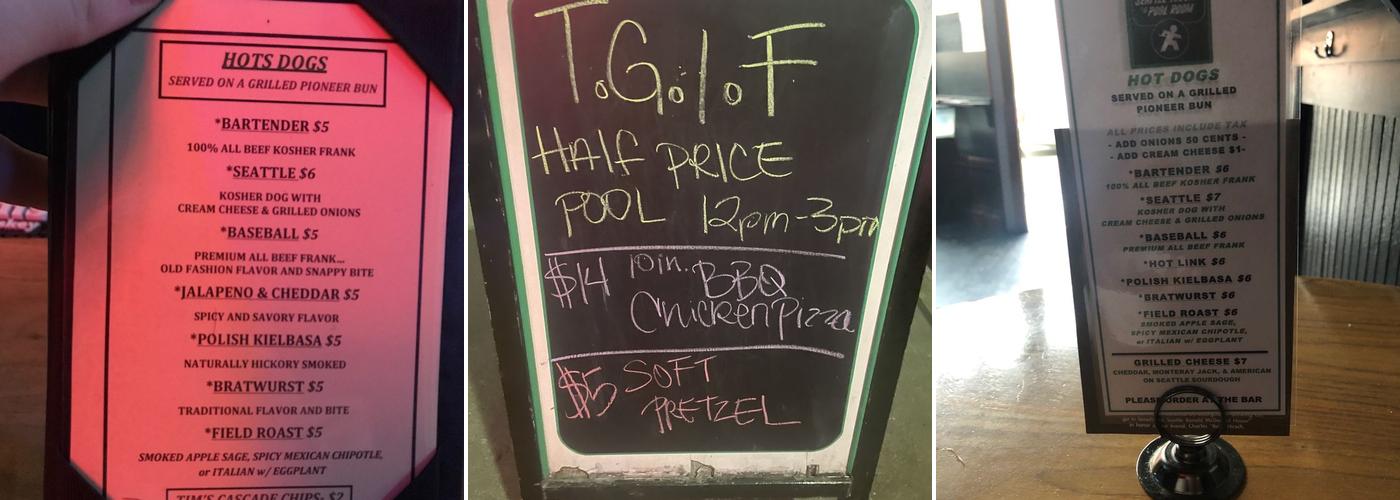 HOTS DOGS
SERVED ON A GRILLED PIONEER BUN
*BARTENDER $5
100% ALL BEEF KOSHER FRANK
*SEATTLE $6
KOSHER DOG WITH
CREAM CHEESE & GRILLED ONIONS
*BASEBALL $5
PREMIUM ALL BEEF FRANK...
OLD FASHION FLAVOR AND SNAPPY BITE
*JALAPENO & CHEDDAR $5
SPICY AND SAVORY FLAVOR
*POLISH KIELBASA $5
NATURALLY HICKORY SMOKED
*BRATWURST $5
TRADITIONAL FLAVOR AND BITE
*FIELD ROAST $5
SMOKED APPLE SAGE, SPICY MEXICAN CHIPOTLE,
or ITALIAN w/ EGGPLANT
TIM'S CASCADE CHIPS- $2
T.G.I.F
HALF PRICE
POOL 12pm-3pm
$14 10in. BBQ
Chicken Pizza
$5 SOFT
PRETZEL
POOL ROOM
HOT DOGS
SERVED ON A GRILLED
PIONEER BUN
ALL PRICES INCLUDE TAX
- ADD ONIONS 50 CENTS -
- ADD CREAM CHEESE $1-
*BARTENDER $6
100% ALL BEEF KOSHER FRANK
*SEATTLE $7
KOSHER DOG WITH
CREAM CHEESE & GRILLED ONIONS
*BASEBALL $6
PREMIUM ALL BEEF FRANK
*HOT LINK $6
*POLISH KIELBASA $6
*BRATWURST $6
*FIELD ROAST $6
SMOKED APPLE SAGE,
SPICY MEXICAN CHIPOTLE,
or ITALIAN w/ EGGPLANT
GRILLED CHEESE $7
CHEDDAR, MONTERAY JACK, & AMERICAN
ON SEATTLE SOURDOUGH
PLEASE ORDER AT THE BAR